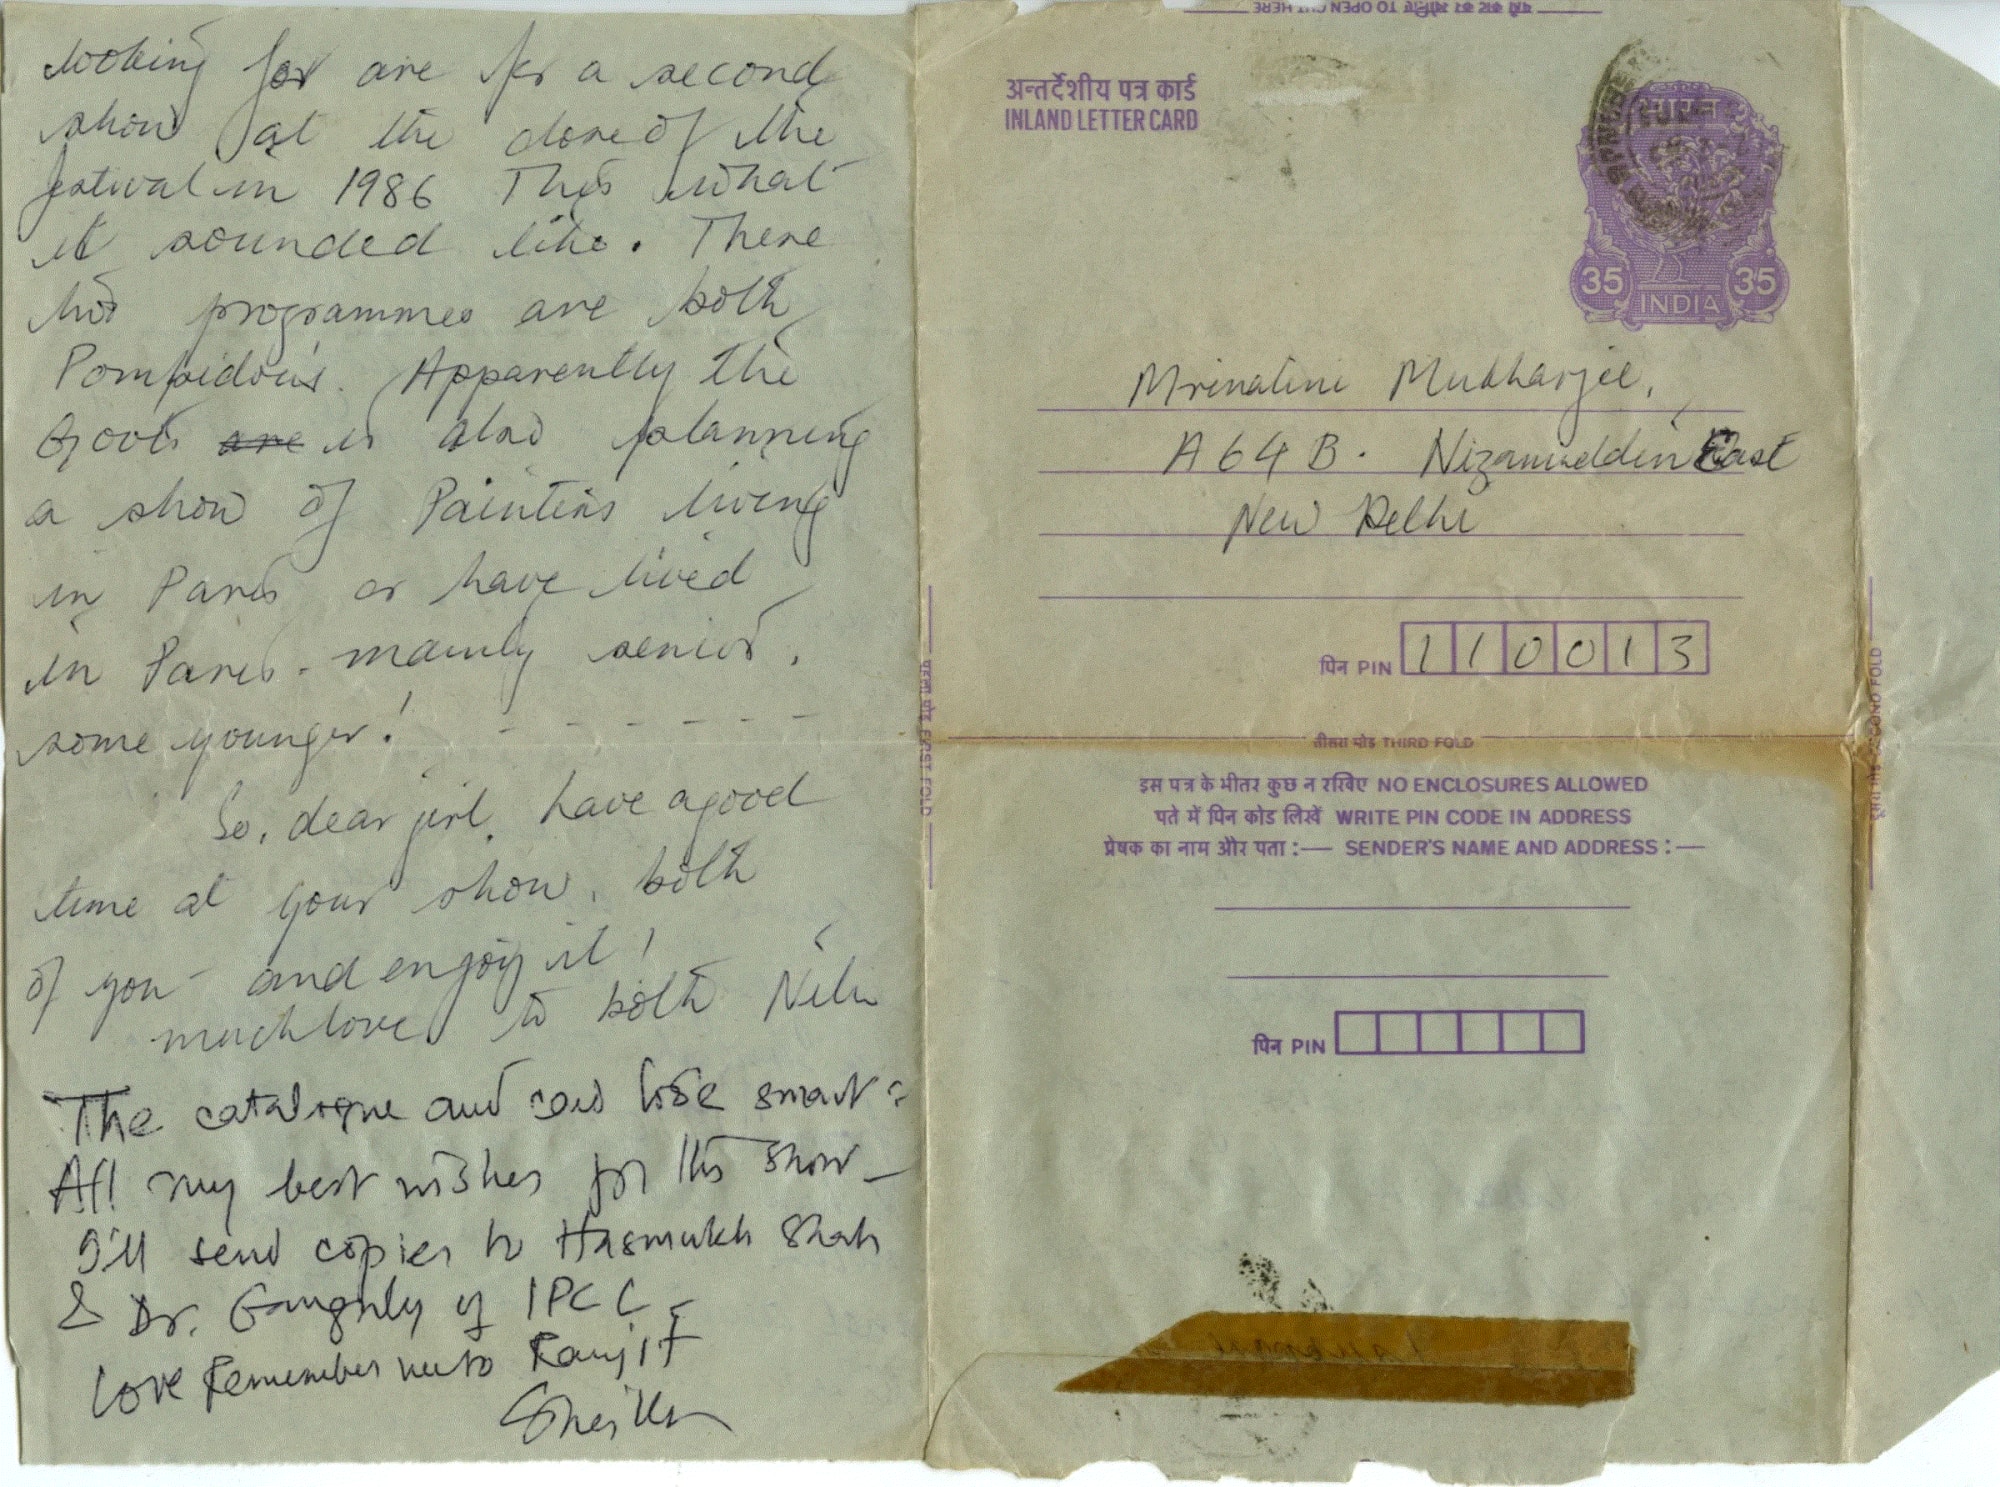 looking for are for a second
show at the close of the
festival in 1986 This what
it sounded like. There
two programmes are both
Pompidou's. Apparently the
Govt's are is also planning
a show of Painters living
in Paris or have lived
in Paris - mainly senior,
some younger! - - - - - -
So, dear girl, have a good
time at your show, both
of you - and enjoy it!
much love to both Nilu
The catalogue and card look smart -
All my best wishes for this show -
I'll send copies to Hasmukh Shah
& Dr. Ganguly of IPCC -
Love Remember me to Ranjit
अन्तर्देशीय पत्र कार्ड
INLAND LETTER CARD
भारत
35 35
INDIA
Mrinalini Mukharjee,
A 64 B. Nizamuddin East
New Delhi
पिन PIN 110013
पहला मोड़ FIRST FOLD
तीसरा मोड़ THIRD FOLD
SECOND FOLD
इस पत्र के भीतर कुछ न रखिए NO ENCLOSURES ALLOWED
पते में पिन कोड लिखें WRITE PIN CODE IN ADDRESS
प्रेषक का नाम और पता :— SENDER'S NAME AND ADDRESS :—
पिन PIN
TO OPEN CUT HERE